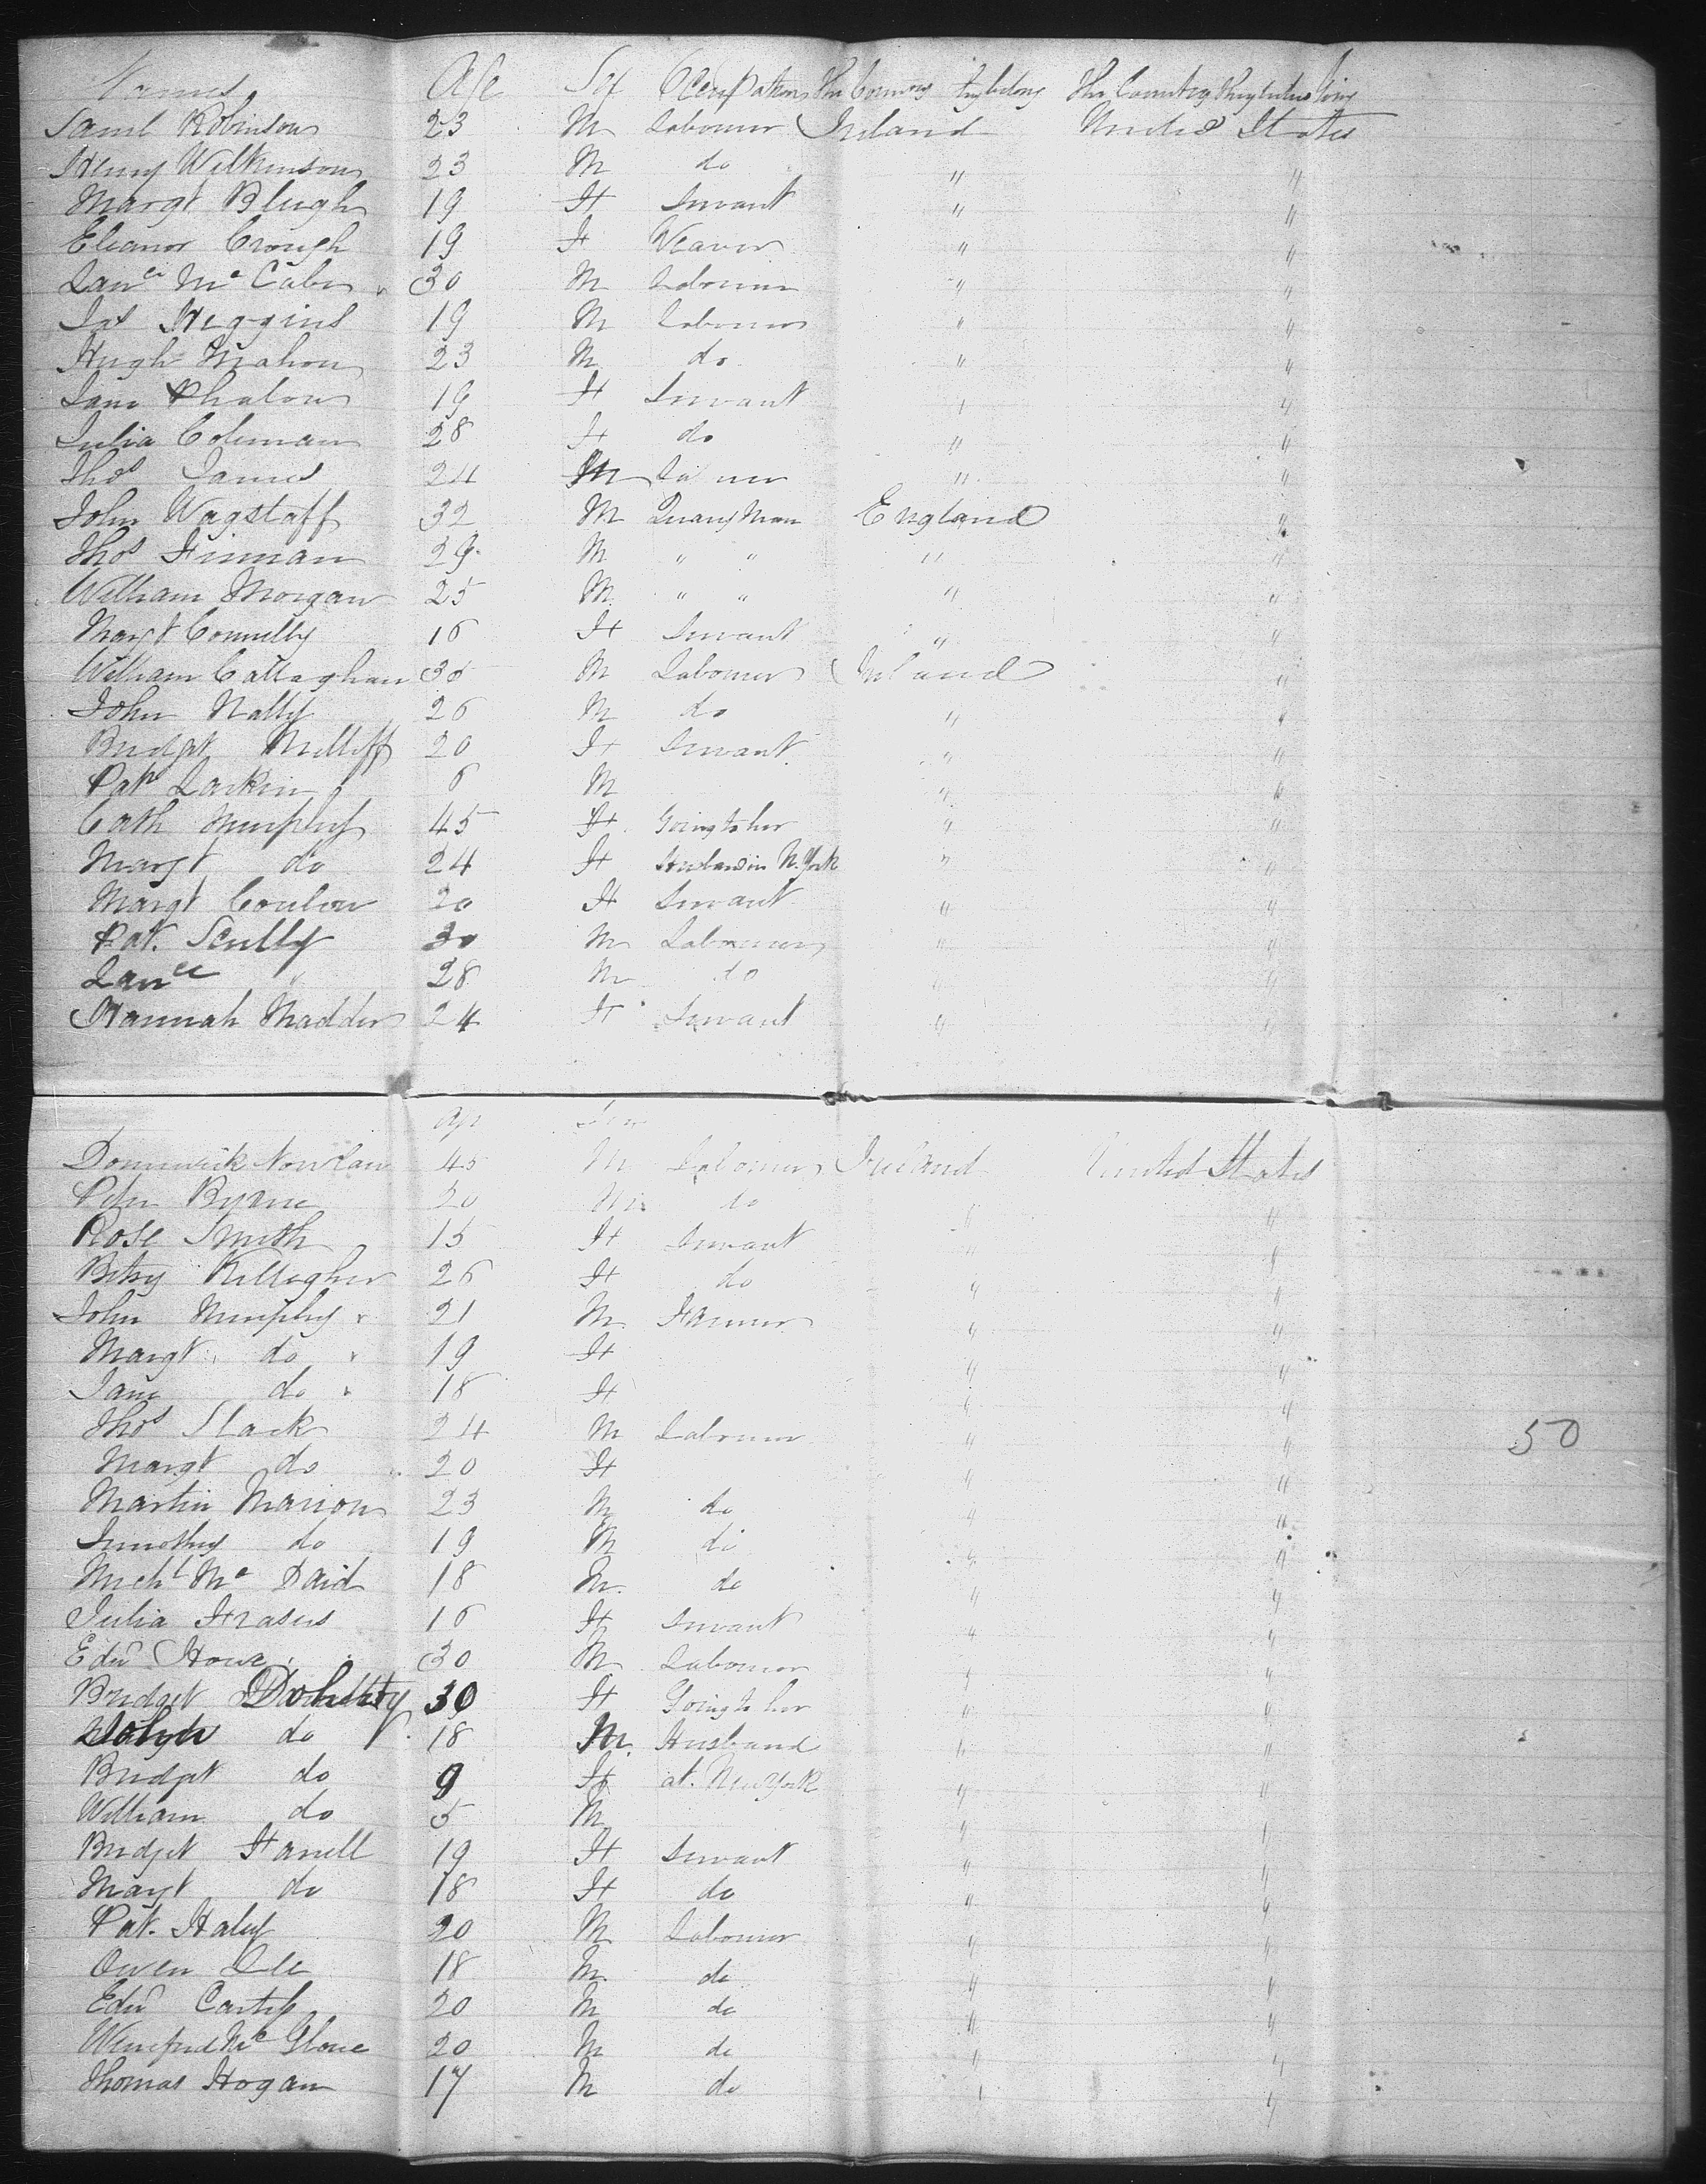 Names Age Sex Occupation The Country they belong The Country they intend living
Saml Robinson 23 M Labourer Ireland United States
Henry Wilkinson 23 M do " "
Margt Blugh 19 F Servant " "
Eleanor Crough 19 F Weaver " "
Lance Mc Cabe 30 M Labourer " "
Jas Higgins 19 M Labourer " "
Hugh Mahon 23 M do " "
Jane Phalon 19 F Servant " "
Julia Coleman 28 F do " "
Thos James 24 M " "
John Wagstaff 32 M Quarry Man England "
Thos Finnan 29 M " " " "
William Morgan 25 M " " " "
Margt Connelly 16 F Servant " "
William Callaghan 35 M Labourer Ireland "
John Nally 26 M do " "
Bridget Melliff 20 F Servant " "
Pat Larkin 6 M " "
Cath Murphy 45 F Going to her " "
Margt do 24 F Husband in N. York " "
Margt Conlon 20 F Servant " "
Pat. Scully 30 M Labourer " "
Lance " 28 M do " "
Hannah Madden 24 F Servant " "
Age Sex
Dominick Nowlan 45 M Labourer Ireland United States
Peter Byrne 20 M do " "
Rose Smith 15 F Servant " "
Betsy Killegher 26 F do " "
John Murphy 21 M Farmer " "
Margt do 19 F " "
Jane do 18 F " "
Thos Slack 24 M Labourer " "
Margt do 20 F " "
Martin Marion 23 M do " "
Timothy do 19 M do " "
Michl Mc Daid 18 M. do " "
Julia Frasus 16 F Servant " "
Edwd Howe 30 M Labourer " "
Bridget Doherty 30 F Going to her " "
do 18 M. Husband " "
Bridget do 9 F at. New York " "
William do 5 M " "
Bridget Farrell 19 F Servant " "
Margt do 18 F do " "
Pat. Haley 20 M Labourer " "
Owen Lee 18 M. do " "
Edwd 20 M do " "
Winefred Mc Glone 20 M do " "
Thomas Hogan 17 M do " "
50